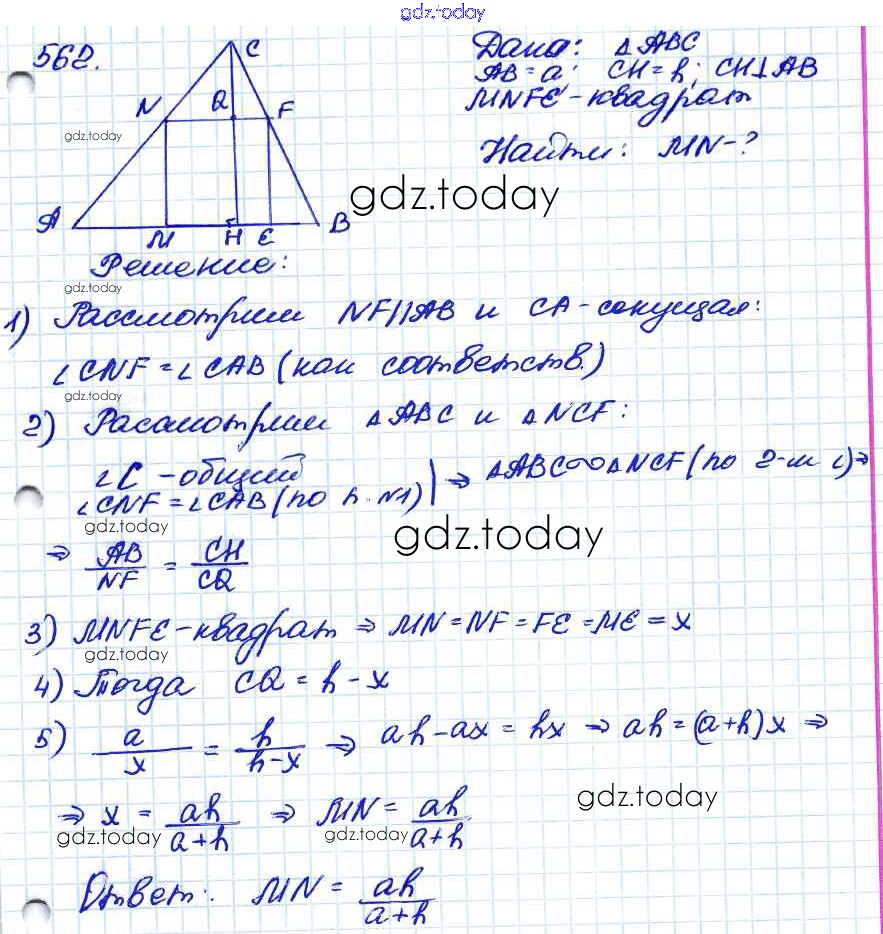 gdz.today
568.
C
N
Q
F
A
M
H
E
B
Дано: △ABC
AB = a; CH = h; CH⊥AB
MNFE - квадрат
Найти: MN - ?
gdz.today
gdz.today
Решение:
gdz.today
1) Рассмотрим NF||AB и CA - секущая:
∠CNF = ∠CAB (как соответств.)
gdz.today
2) Рассмотрим △ABC и △NCF:
∠C - общий
∠CNF = ∠CAB (по п. №1) | ⇒ △ABC∾△NCF (по 2-м ∠) ⇒
gdz.today
gdz.today
⇒ AB/NF = CH/CQ
3) MNFE - квадрат ⇒ MN = NF = FE = ME = x
gdz.today
4) Тогда CQ = h - x
5) a/x = h/(h-x) ⇒ ah - ax = hx ⇒ ah = (a+h)x ⇒
gdz.today
⇒ x = ah/(a+h) ⇒ MN = ah/(a+h)
gdz.today
gdz.today
Ответ: MN = ah/(a+h)